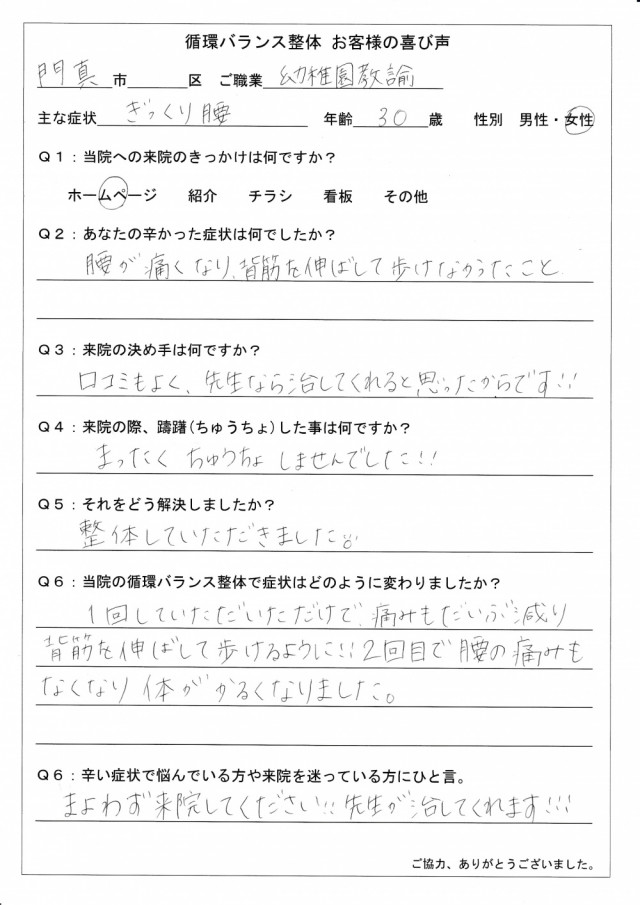 循環バランス整体 お客様の喜び声
門真市 区 ご職業 幼稚園教諭
主な症状 ぎっくり腰 年齢 30 歳 性別 男性・女性
Q1：当院への来院のきっかけは何ですか？
ホームページ 紹介 チラシ 看板 その他
Q2：あなたの辛かった症状は何でしたか？
腰が痛くなり、背筋を伸ばして歩けなかったこと
Q3：来院の決め手は何ですか？
口コミもよく、先生なら治してくれると思ったからです!!
Q4：来院の際、躊躇(ちゅうちょ)した事は何ですか？
まったく ちゅうちょ しませんでした!!
Q5：それをどう解決しましたか？
整体していただきました
Q6：当院の循環バランス整体で症状はどのように変わりましたか？
1回していただいただけで、痛みもだいぶ減り
背筋を伸ばして歩けるように!!2回目で腰の痛みも
なくなり体がかるくなりました。
Q6：辛い症状で悩んでいる方や来院を迷っている方にひと言。
まよわず来院してください!!先生が治してくれます!!!
ご協力、ありがとうございました。